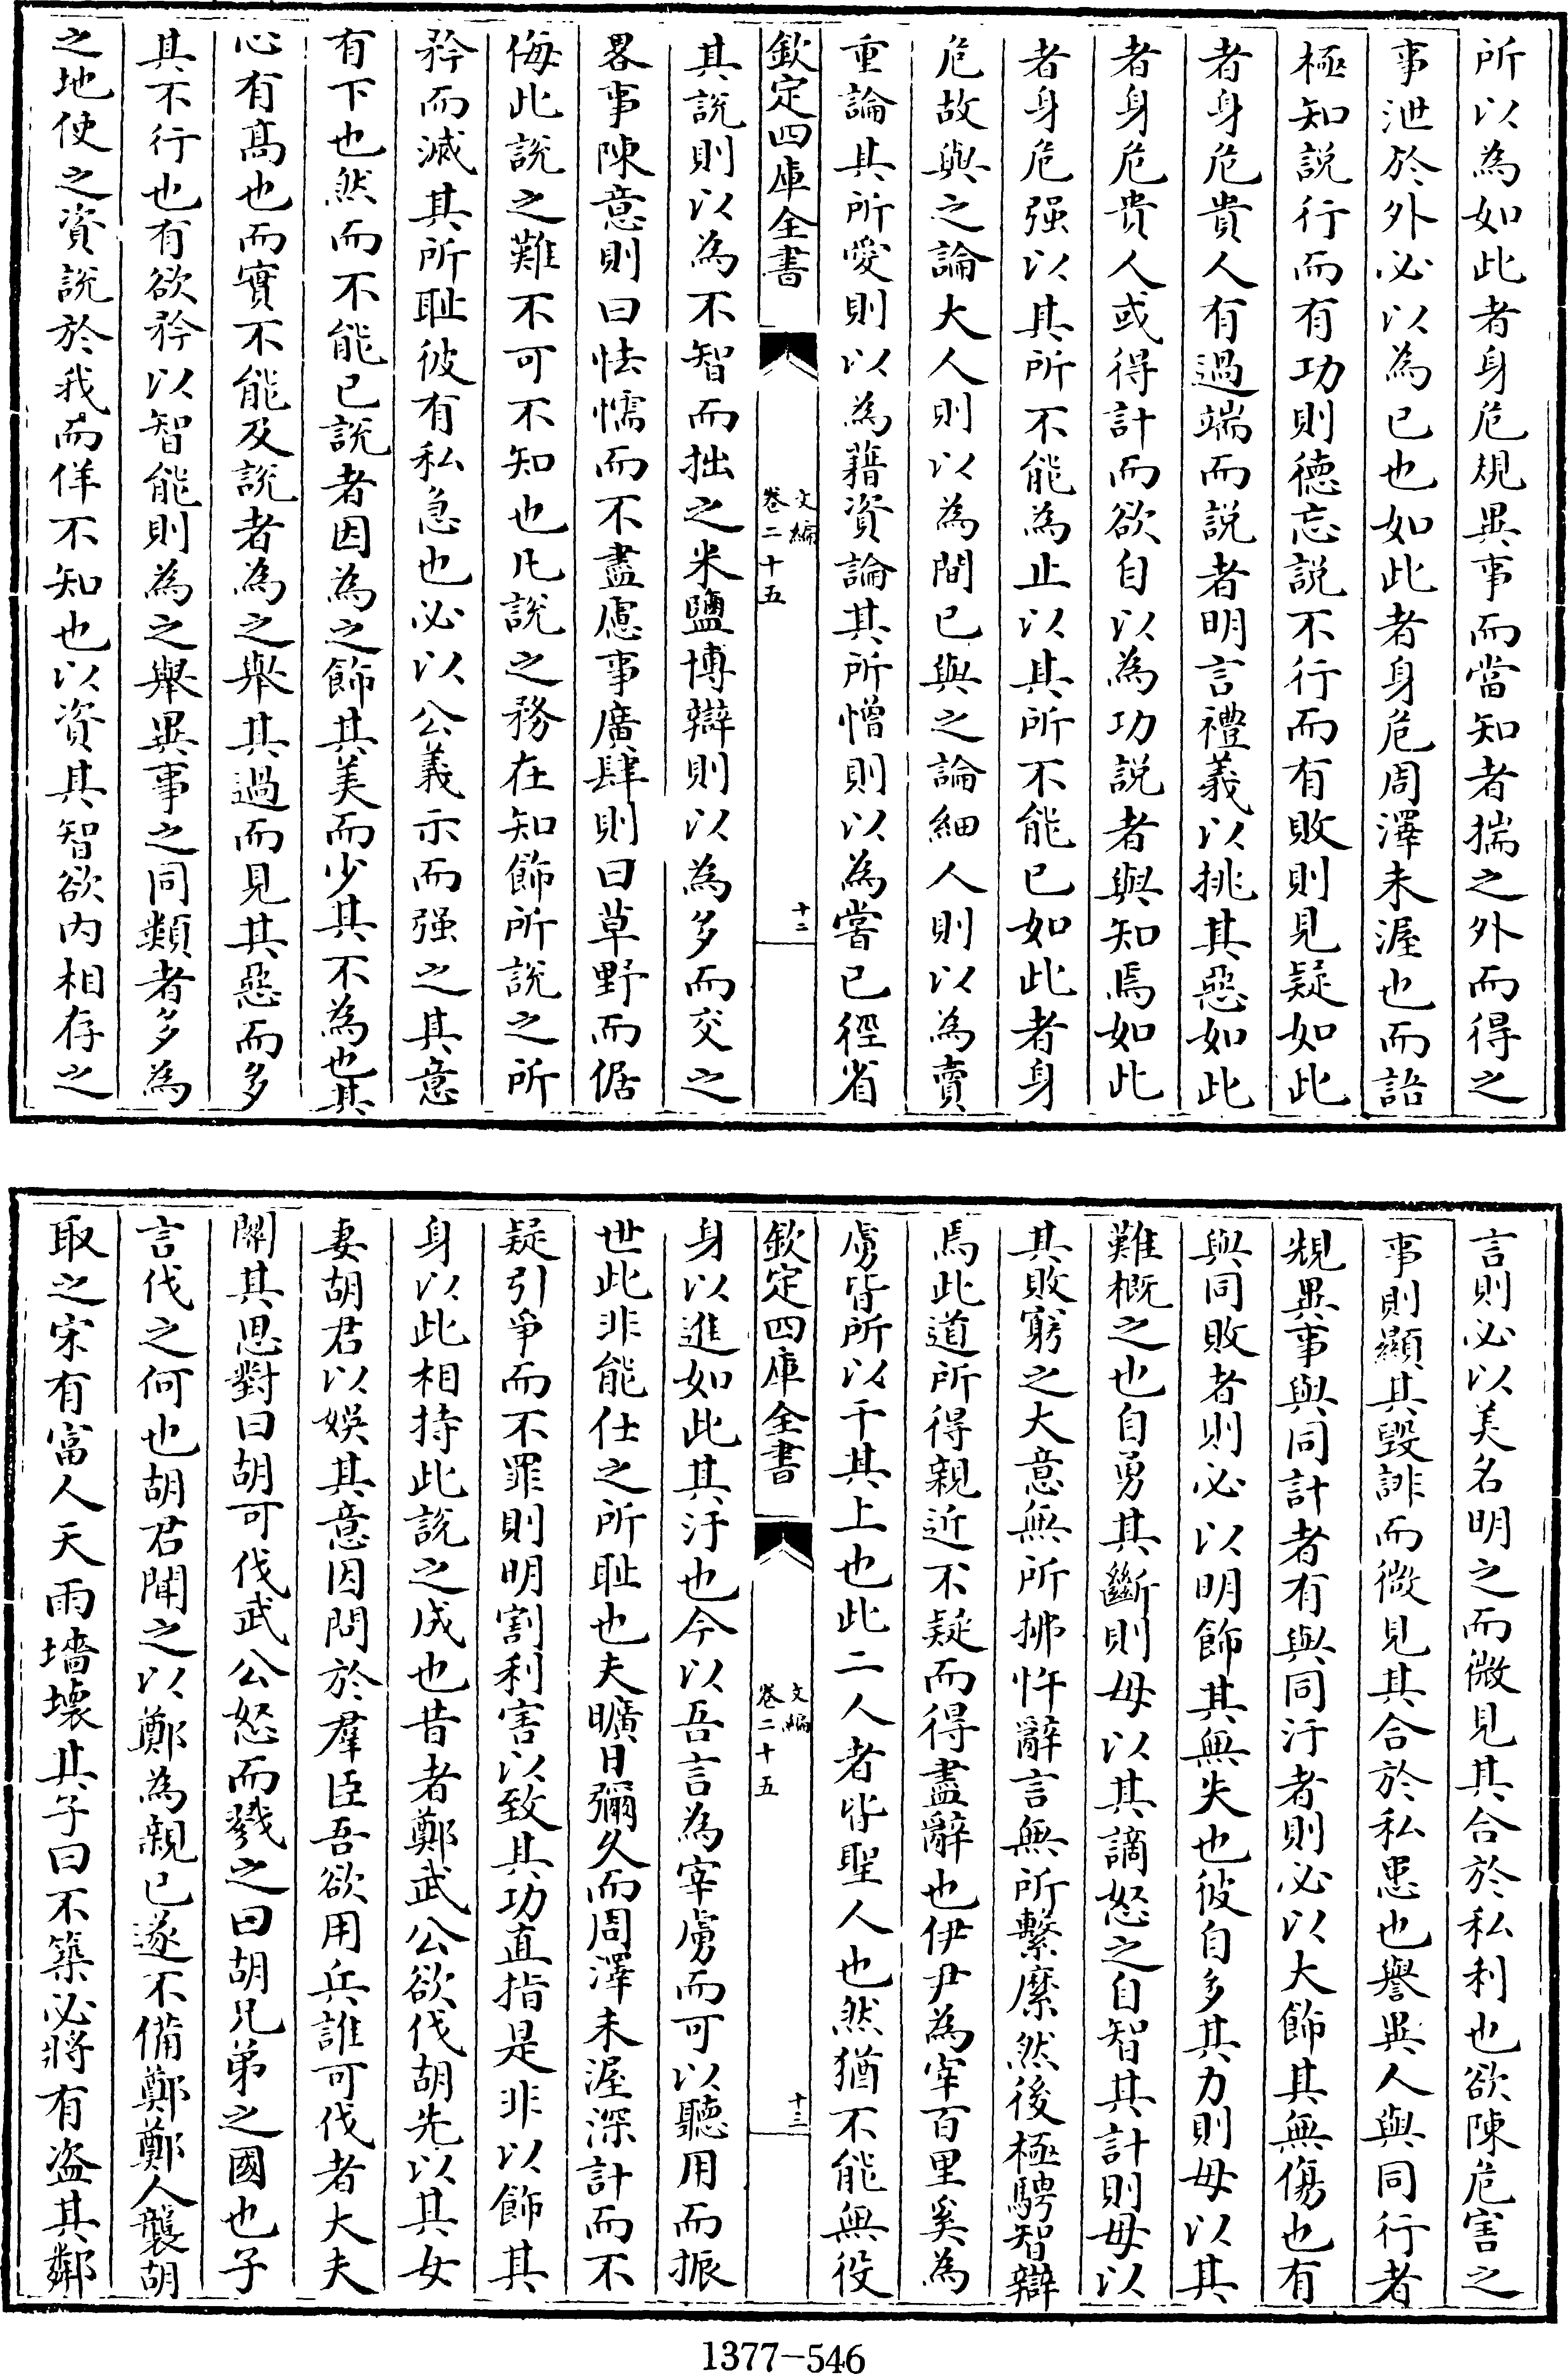 所以為如此者身危規異事而當知者揣之外而得之
事泄於外必以為已也如此者身危周澤未渥也而語
極知説行而有功則德忘説不行而有敗則見疑如此
者身危貴人有過端而説者明言禮義以挑其惡如此
者身危貴人或得計而欲自以為功説者與知焉如此
者身危强以其所不能為止以其所不能已如此者身
危故與之論大人則以為間已與之論細人則以為賣
重論其所愛則以為藉資論其所憎則以為嘗已徑省
欽定四庫全書
文編
卷二十五
十二
其説則以為不智而拙之米鹽博辯則以為多而交之
畧事陳意則曰怯懦而不盡慮事廣肆則曰草野而倨
侮此説之難不可不知也凡説之務在知飾所説之所
矜而滅其所耻彼有私急也必以公義示而强之其意
有下也然而不能已説者因為之飾其美而少其不為也其
心有髙也而實不能及説者為之舉其過而見其惡而多
其不行也有欲矜以智能則為之舉異事之同類者多為
之地使之資説於我而佯不知也以資其智欲内相存之
言則必以美名明之而微見其合於私利也欲陳危害之
事則顯其毀誹而微見其合於私患也譽異人與同行者
規異事與同計者有與同汙者則必以大飾其無傷也有
與同敗者則必以明飾其無失也彼自多其力則毋以其
難概之也自勇其斷則毋以其謫怒之自智其計則毋以
其敗窮之大意無所拂忤辭言無所繫縻然後極騁智辯
焉此道所得親近不疑而得盡辭也伊尹為宰百里奚為
虜皆所以干其上也此二人者皆聖人也然猶不能無役
欽定四庫全書
文編
卷二十五
十三
身以進如此其汙也今以吾言為宰虜而可以聽用而振
世此非能仕之所耻也夫曠日彌久而周澤未渥深計而不
疑引爭而不罪則明割利害以致其功直指是非以飾其
身以此相持此説之成也昔者鄭武公欲伐胡先以其女
妻胡君以娛其意因問於羣臣吾欲用兵誰可伐者大夫
關其思對曰胡可伐武公怒而戮之曰胡兄弟之國也子
言伐之何也胡君聞之以鄭為親已遂不備鄭鄭人襲胡
取之宋有富人天雨墻壞其子曰不築必將有盗其鄰
1377-546